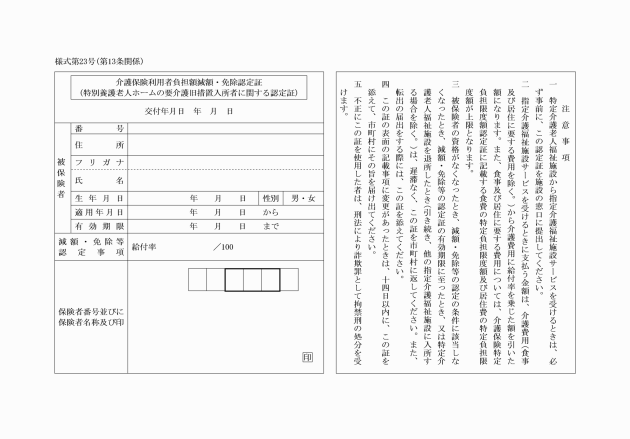 様式第23号(第13条関係)
介護保険利用者負担額減額・免除認定証
(特別養護老人ホームの要介護旧措置入所者に関する認定証)
交付年月日　年　月　日
被保険者
番号
住所
フリガナ
氏名
生年月日　年　月　日　性別　男・女
適用年月日　年　月　日　から
有効期限　年　月　日　まで
減額・免除等
認定事項
給付率　／100
保険者番号並びに
保険者名称及び印
印
注意事項
一　特定介護老人福祉施設から指定介護福祉施設サービスを受けるときは、必
ず事前に、この認定証を施設の窓口に提出してください。
二　指定介護福祉施設サービスを受けるときに支払う金額は、介護費用(食事
及び居住に要する費用を除く。)から介護費用に給付率を乗じた額を引いた
額になります。また、食事及び居住に要する費用については、介護保険特定
負担限度額認定証に記載する食費の特定負担限度額及び居住費の特定負担限
度額が上限となります。
三　被保険者の資格がなくなったとき、減額・免除等の認定の条件に該当しな
くなったとき、減額・免除等の認定証の有効期限に至ったとき、又は特定介
護老人福祉施設を退所したとき(引き続き、他の指定介護福祉施設に入所す
る場合を除く。)は、遅滞なく、この証を市町村に返してください。また、
転出の届出をする際には、この証を添えてください。
四　この証の表面の記載事項に変更があったときは、十四日以内に、この証を
添えて、市町村にその旨を届け出てください。
五　不正にこの証を使用した者は、刑法により詐欺罪として拘禁刑の処分を受
けます。